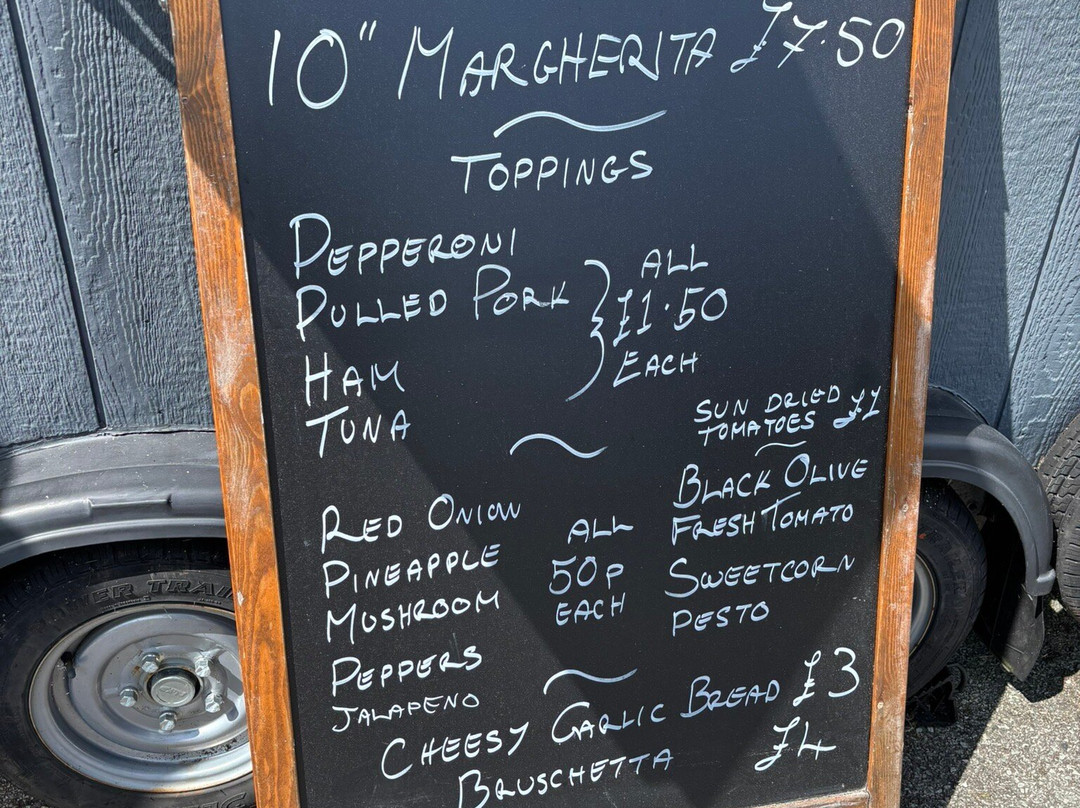 10" MARGHERITA £7.50
TOPPINGS
PEPPERONI
PULLED PORK
HAM
TUNA
ALL
£1.50
EACH
SUN DRIED
TOMATOES £1
RED ONION
PINEAPPLE
MUSHROOM
PEPPERS
JALAPENO
ALL
50P
EACH
BLACK OLIVE
FRESH TOMATO
SWEETCORN
PESTO
CHEESY GARLIC BREAD £3
BRUSCHETTA £4